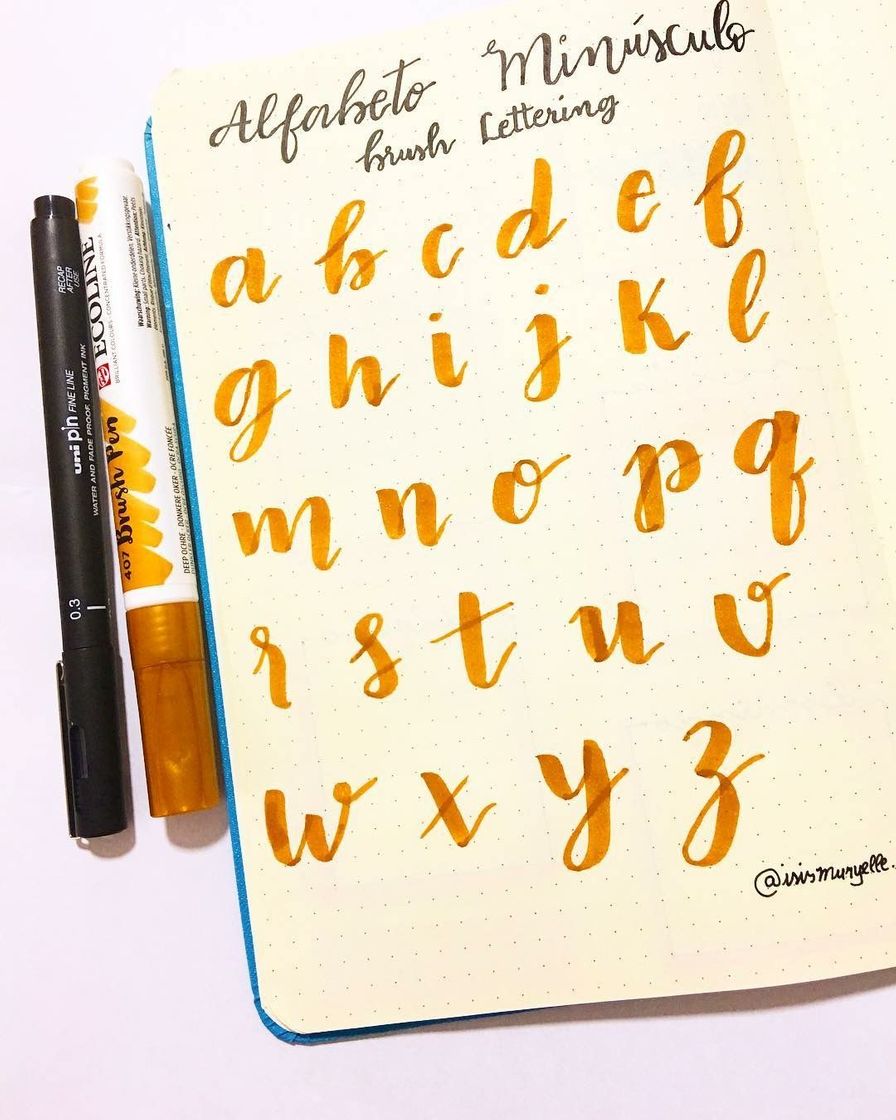 Alfabeto Minúsculo
brush Lettering
a b c d e f
g h i j k l
m n o p q
r s t u v
w x y z
@isismuryelle.
RECAP
AFTER
USE
uni pin FINE LINE
WATER AND FADE PROOF, PIGMENT INK
0.3
ECOLINE
BRILLIANT COLOURS · CONCENTRATED FORMULA
407 Brush Pen
DEEP OCHRE · DONKERE OKER · OCRE FONCÉE